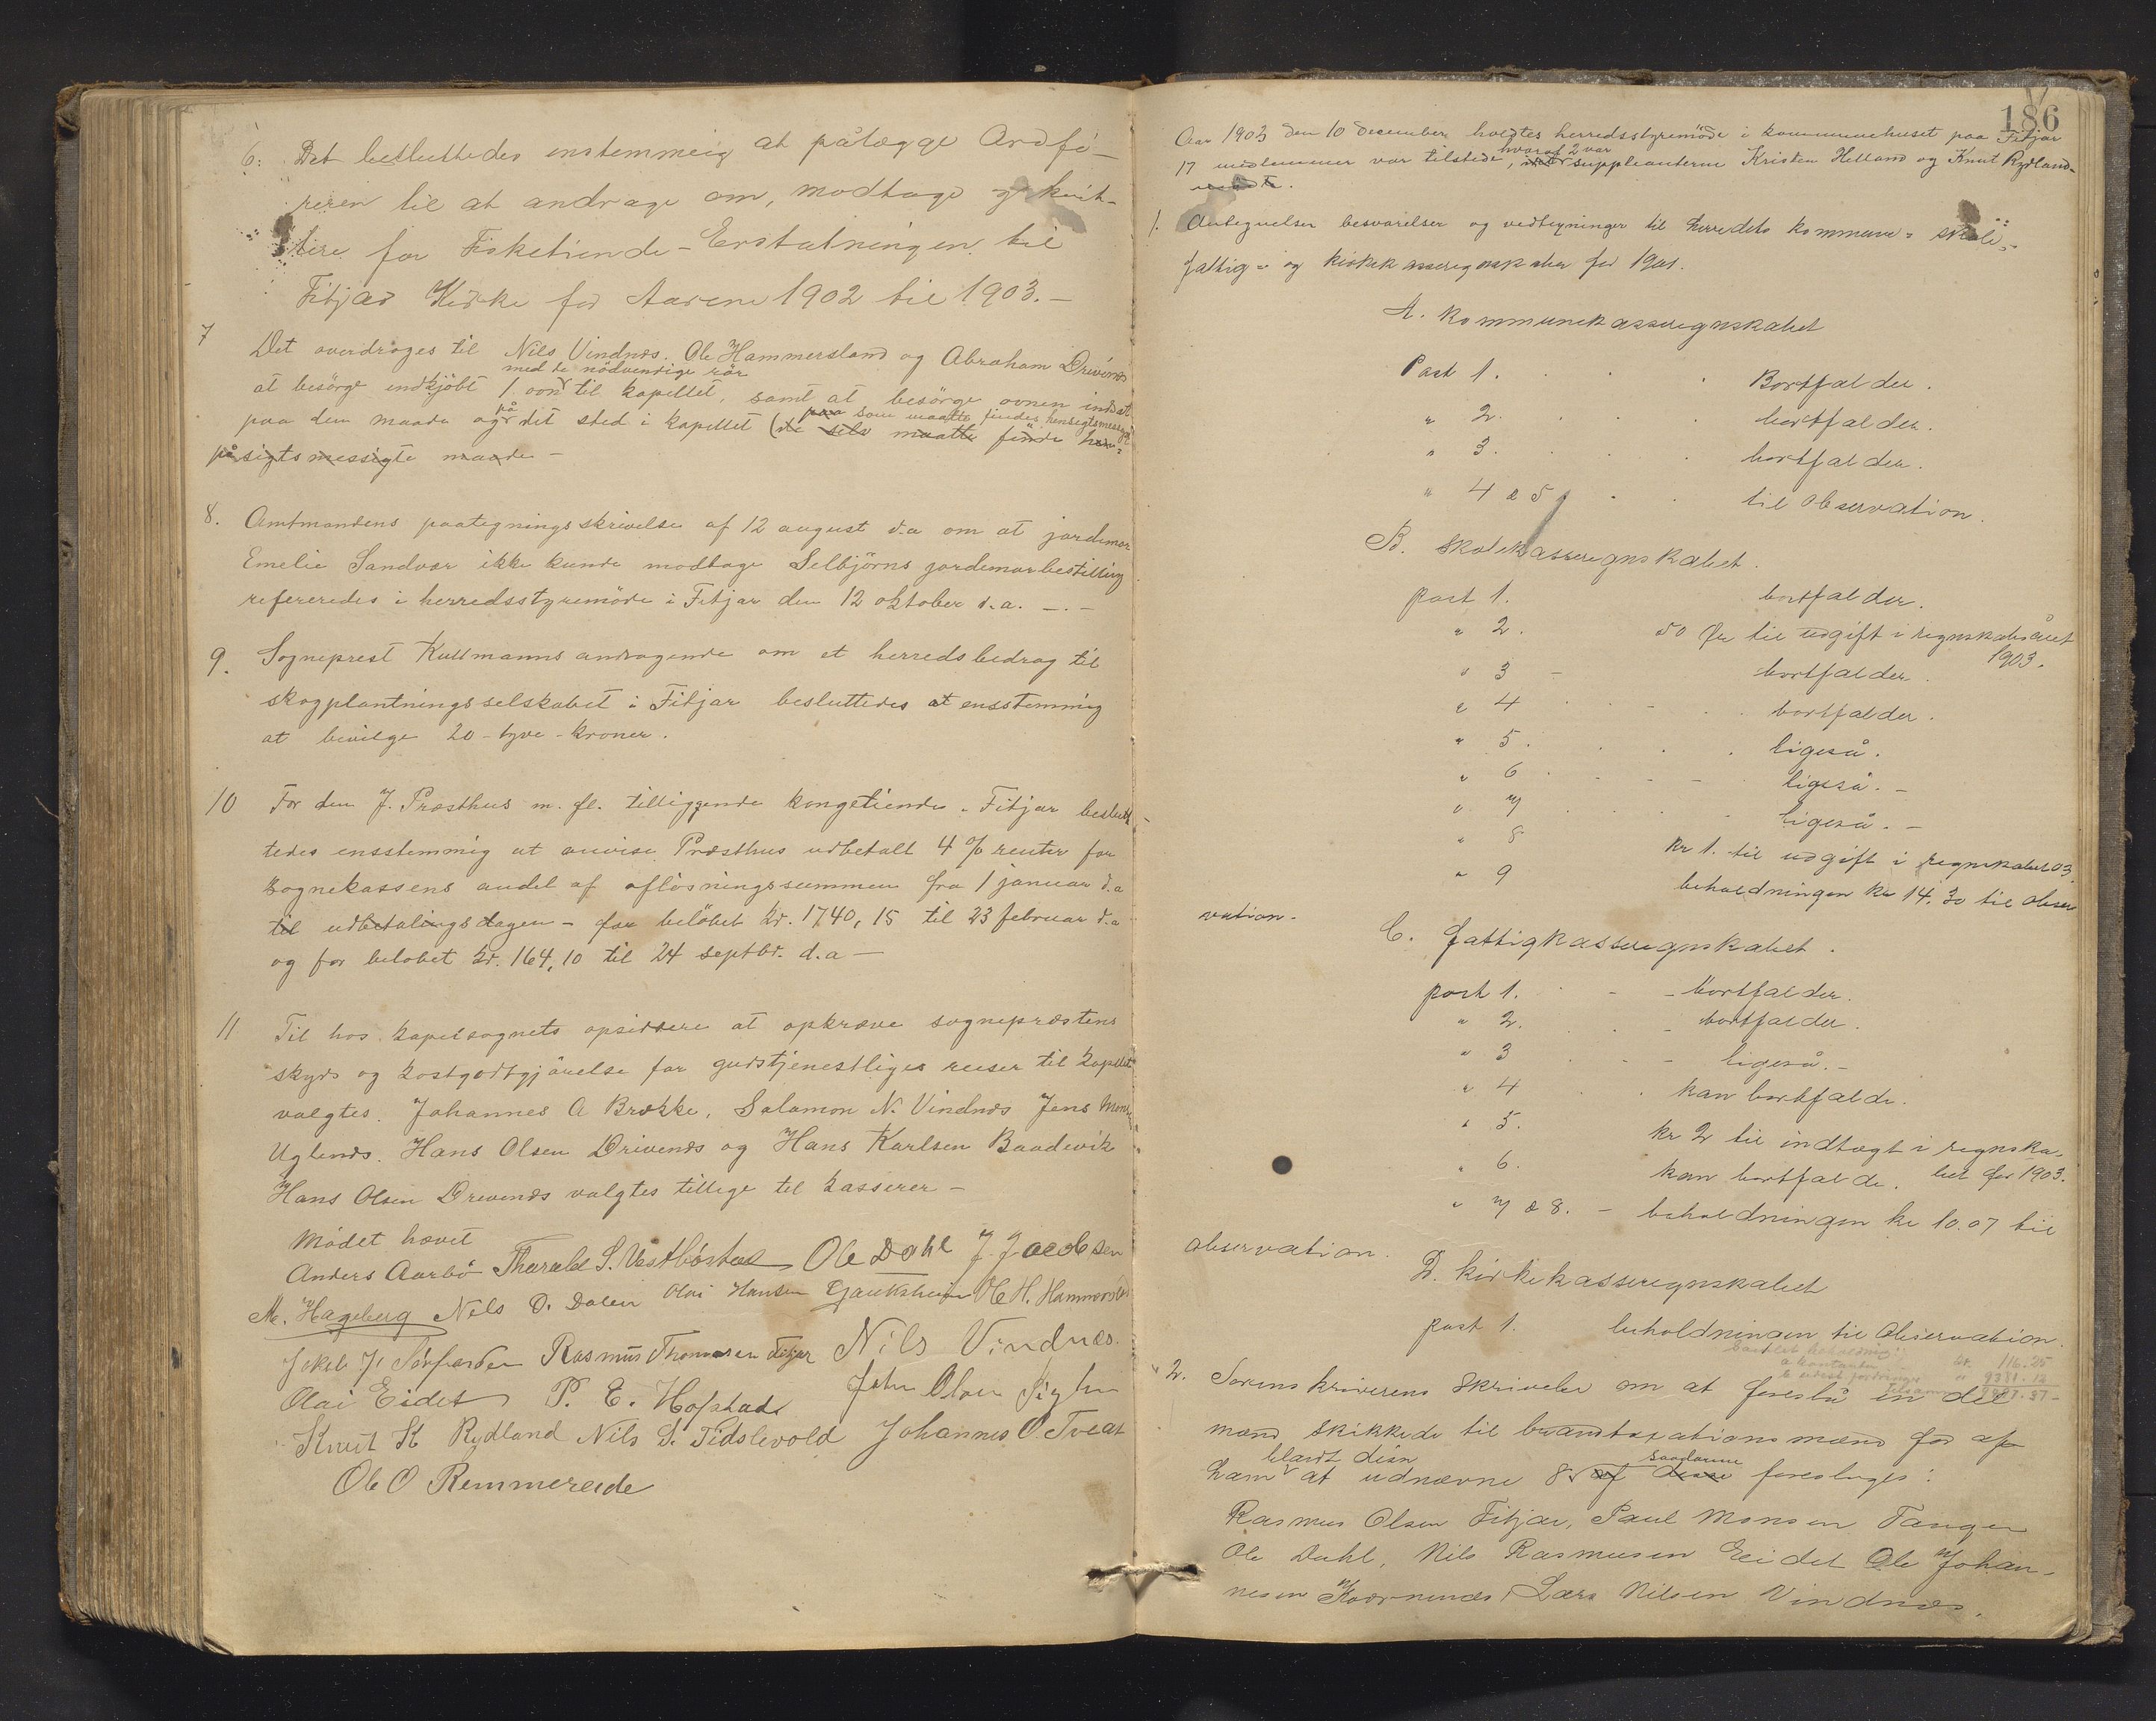 6. Det besluttedes enstemmeig at pålægge Ordfö-
reren til at andrage om, modtage og kvit-
tere for Fisketiende-Erstatningen til
Fitjar Kirke for Aarene 1902 til 1903.-
7 Det overdrages til Nils Vindnæs. Ole Hammersland og Abraham Drivenes
med de nödvendige rör
at besörge indkjöbt 1 oon til kapellet, samt at besörge ovnen indsat
på paa som maatte findes hensigtsmessigt
paa den maade og det sted i kapellet (de selv maatte finde hen-
på sigtsmessigte maade -
8. Amtmandens paategningsskrivelse af 12 august d.a om at jordemor
Emelie Sandvær ikke kunde modtage Selbjörns jordemorbestilling
refereredes i herredsstyremöde i Fitjar den 12 oktober d.a. -.-
9. Sogneprest Kullmanns andragende om et herredsbedrag til
skogplantningsselskabet i Fitjar besluttedes at ensstemmig
at bevilge 20 - tyve - kroner.
10 For den J. Præsthus m. fl. tilliggende kongetiende. Fitjar beslut-
tedes ensstemmig at anvise Præsthus udbetalt 4 % renter for
Sognekassens andel af aflösningssummen fra 1 januar d.a
til udbetalingsdagen - for belöbet kr. 1740,15 til 23 februar d.a
og for belobet kr. 164,10 til 24 septbr. d.a -
11 Til hos kapelsognets opsiddere at opkræve sogneprestens
skyds og kostgodtgjörelse for gudstjenestliges reiser til kapellet
valgtes. Johannes A Brække, Salamon N. Vindnæs Jens Mons
Uglenæs. Hans Olsen Drivenæs og Hans Karlsen Baadevik
Hans Olsen Drevenæs valgtes tillige til kasserer -
Mödet hævet
Anders Aarbö Tharald S. Vestböstad Ole Dahl J. Jacobsen
M. Hageberg Nils O. Dalen Olai Hansen Gjauksheim O H. Hammersland
Jakob J. Sörfonden Rasmus Thomasen Fitjar Nils Vindnæs.
Olai Eidet P. E. Hofstad John Olsen
Knut K Rydland Nils S. Tidslevold Johannes O Tveat
Ole O Remmereide
186
Aar 1903 den 10 december holdtes herredsstyremöde i kommunehuset paa Fitjar
hvoraf 2 var
17 medlemmer var tilstede, suppleanterne Kristen Helland og Knut Rydland-
1. Antegnelser besvarelser og vedtegninger til herredets kommune- skole-
fattig- og kirkekasseregnskaber for 1901.
A. Kommunekasseregnskabet
Post 1. Bortfalder.
" 2. bortfalder.
" 3. bortfalder.
" 4 & 5 til observation.
B. Skolekasseregnskabet.
post 1. bortfalder.
" 2. 50 Öre til udgift i regnskabsåret
1903.
" 3 - bortfalder.
" 4 bortfalder.
" 5. ligeså.
" 6 ligeså. -
" 7 ligeså. -
" 8 kr 1. til udgift i regnskabet 03.
" 9 beholdningen kr 14.30 til obser
vation.
C. Fattigkasseregnskabet.
post 1. bortfalder.
" 2. bortfalder.
" 3 ligeså. -
" 4 kan bortfalde.
" 5. kr 2 til indtægt i regnska-
" 6. kan bortfalde. bet for 1903.
" 7 & 8. - beholdningen kr 10.07 til
observation.
D. kirkekasseregnskabet
post 1. beholdningen til Observation.
kr. 116.25
2. Sorenskriverens skrivelse om at foreslå en del
mænd skikkede til brandtaxationsmænd for af
blandt disse saadanne
ham at udnævne 8 af disse foreslages:
Rasmus Olsen Fitjar, Paul Monsen Tangen
Ole Dahl, Nils Rasmusen Eidet Ole Johan-
nesen Kværnenæs, Lars Nilsen Vindnæs.